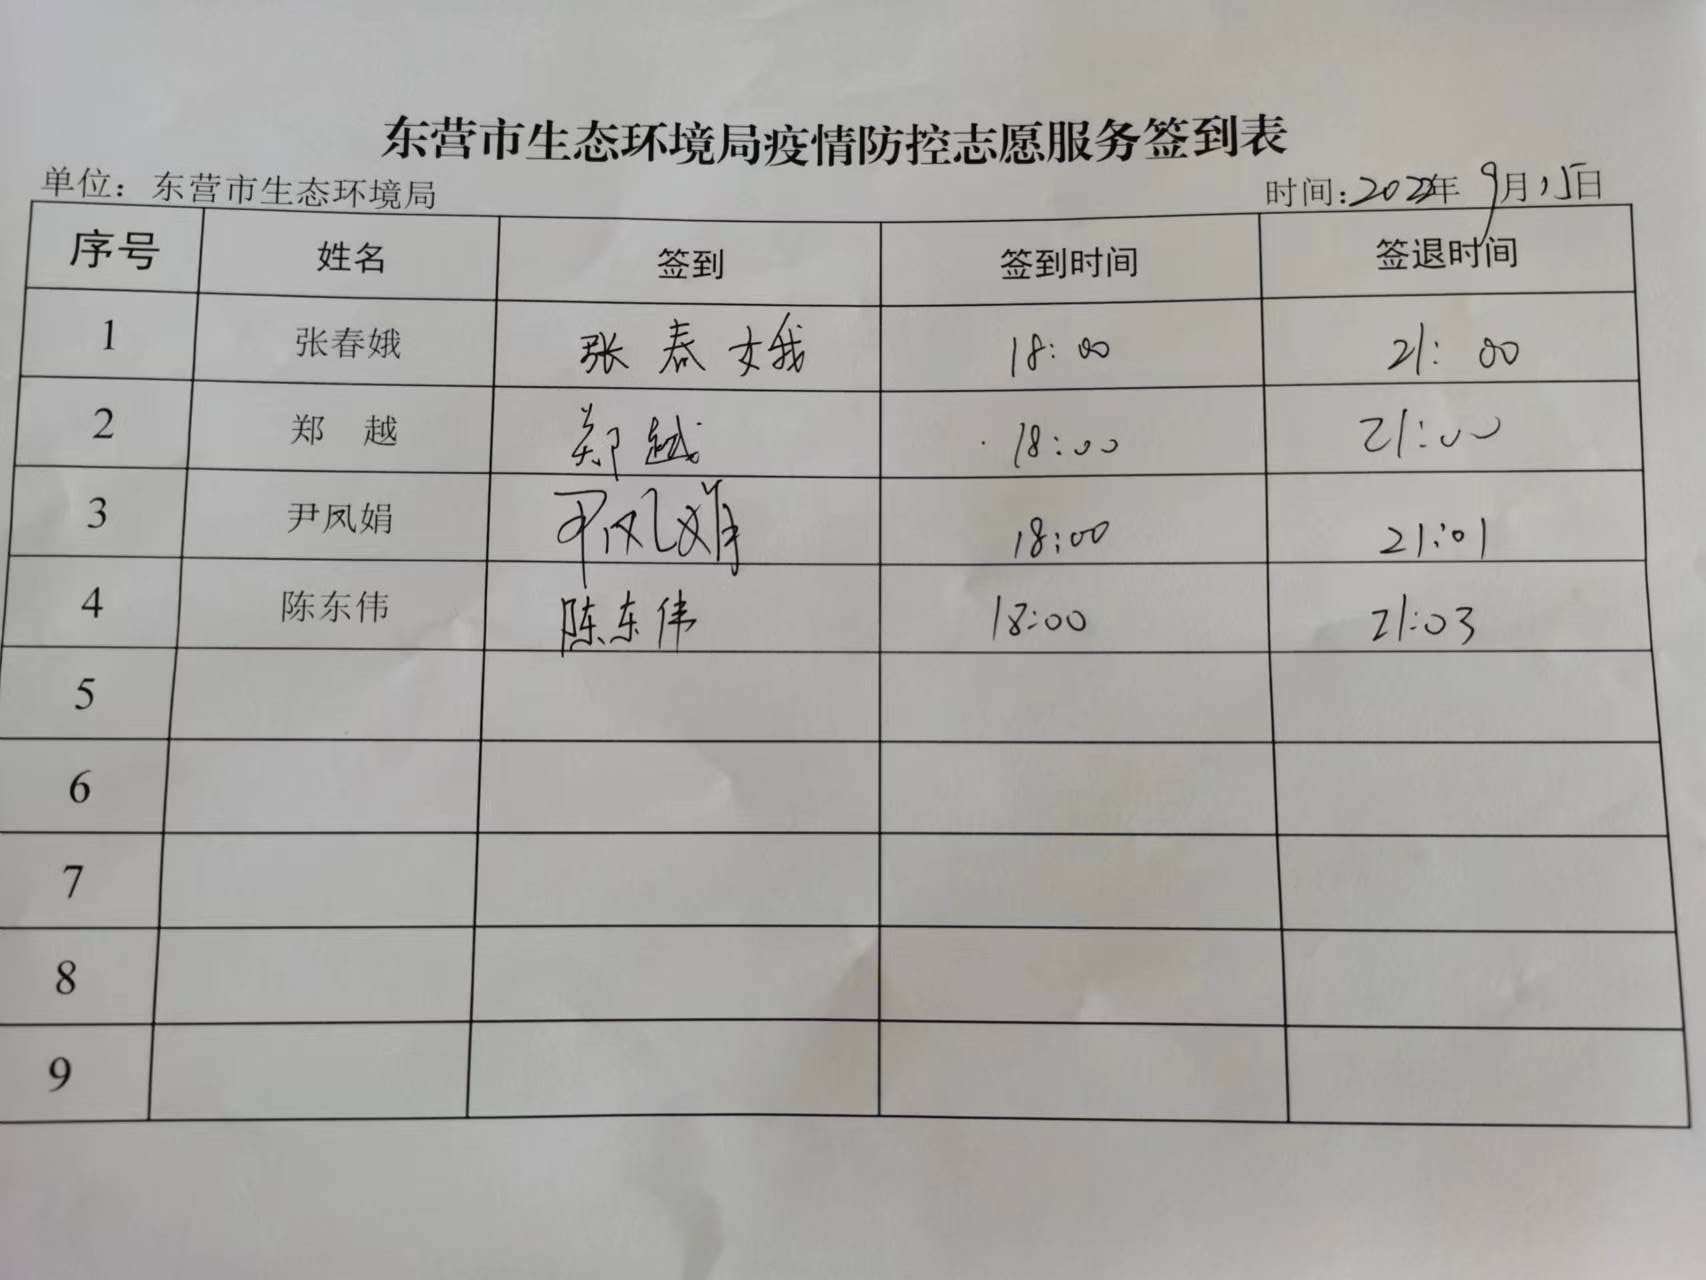 东营市生态环境局疫情防控志愿服务签到表
单位：东营市生态环境局 时间:2022年 9月15日
序号 姓名 签到 签到时间 签退时间
1 张春娥 张春娥 18:00 21:00
2 郑 越 郑越 18:00 21:00
3 尹凤娟 尹凤娟 18:00 21:01
4 陈东伟 陈东伟 18:00 21:03
5
6
7
8
9